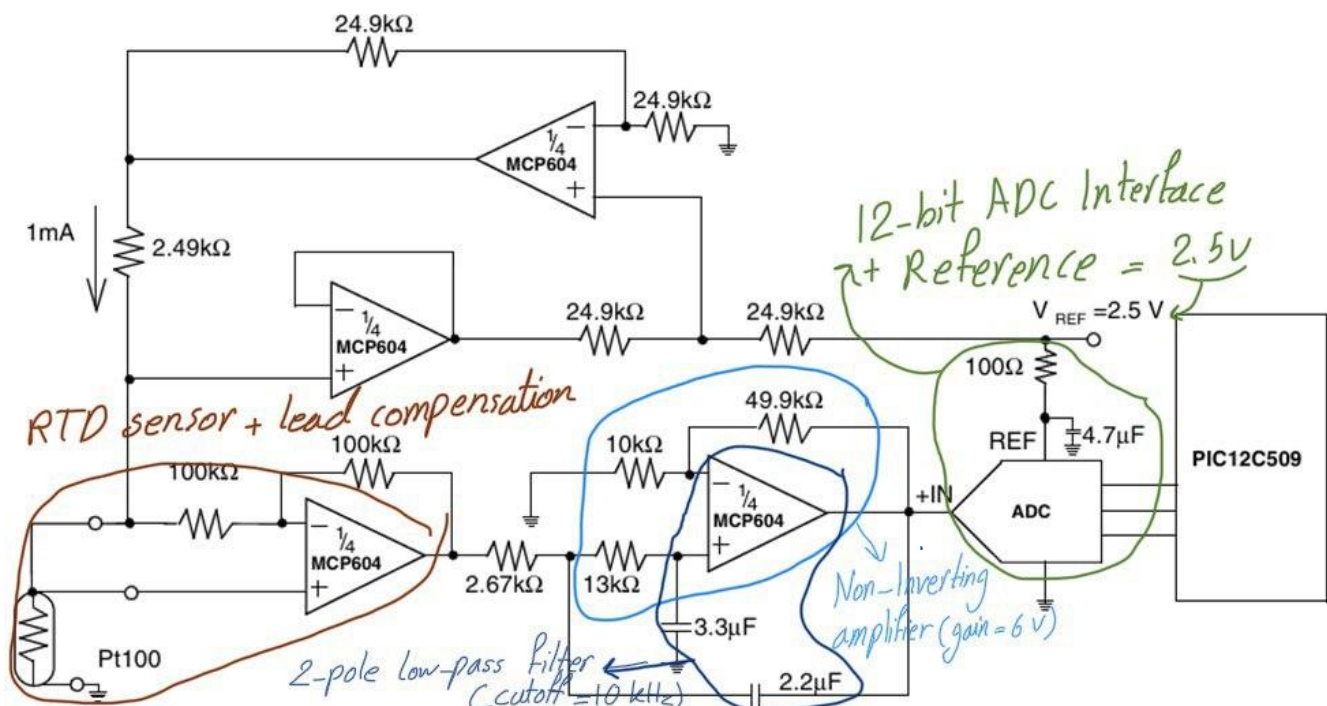 24.9kΩ
24.9kΩ
1/4
MCP604
−
+
1mA
2.49kΩ
12-bit ADC Interface
+ Reference = 2.5V
−
1/4
MCP604
+
24.9kΩ
24.9kΩ
V REF =2.5 V
100Ω
RTD sensor + lead compensation
49.9kΩ
REF
4.7µF
PIC12C509
100kΩ
100kΩ
10kΩ
−
1/4
MCP604
+
+IN
ADC
−
1/4
MCP604
+
2.67kΩ
13kΩ
Non-Inverting
amplifier (gain=6 V)
3.3µF
Pt100
2-pole low-pass filter
(cutoff=10 kHz)
2.2µF